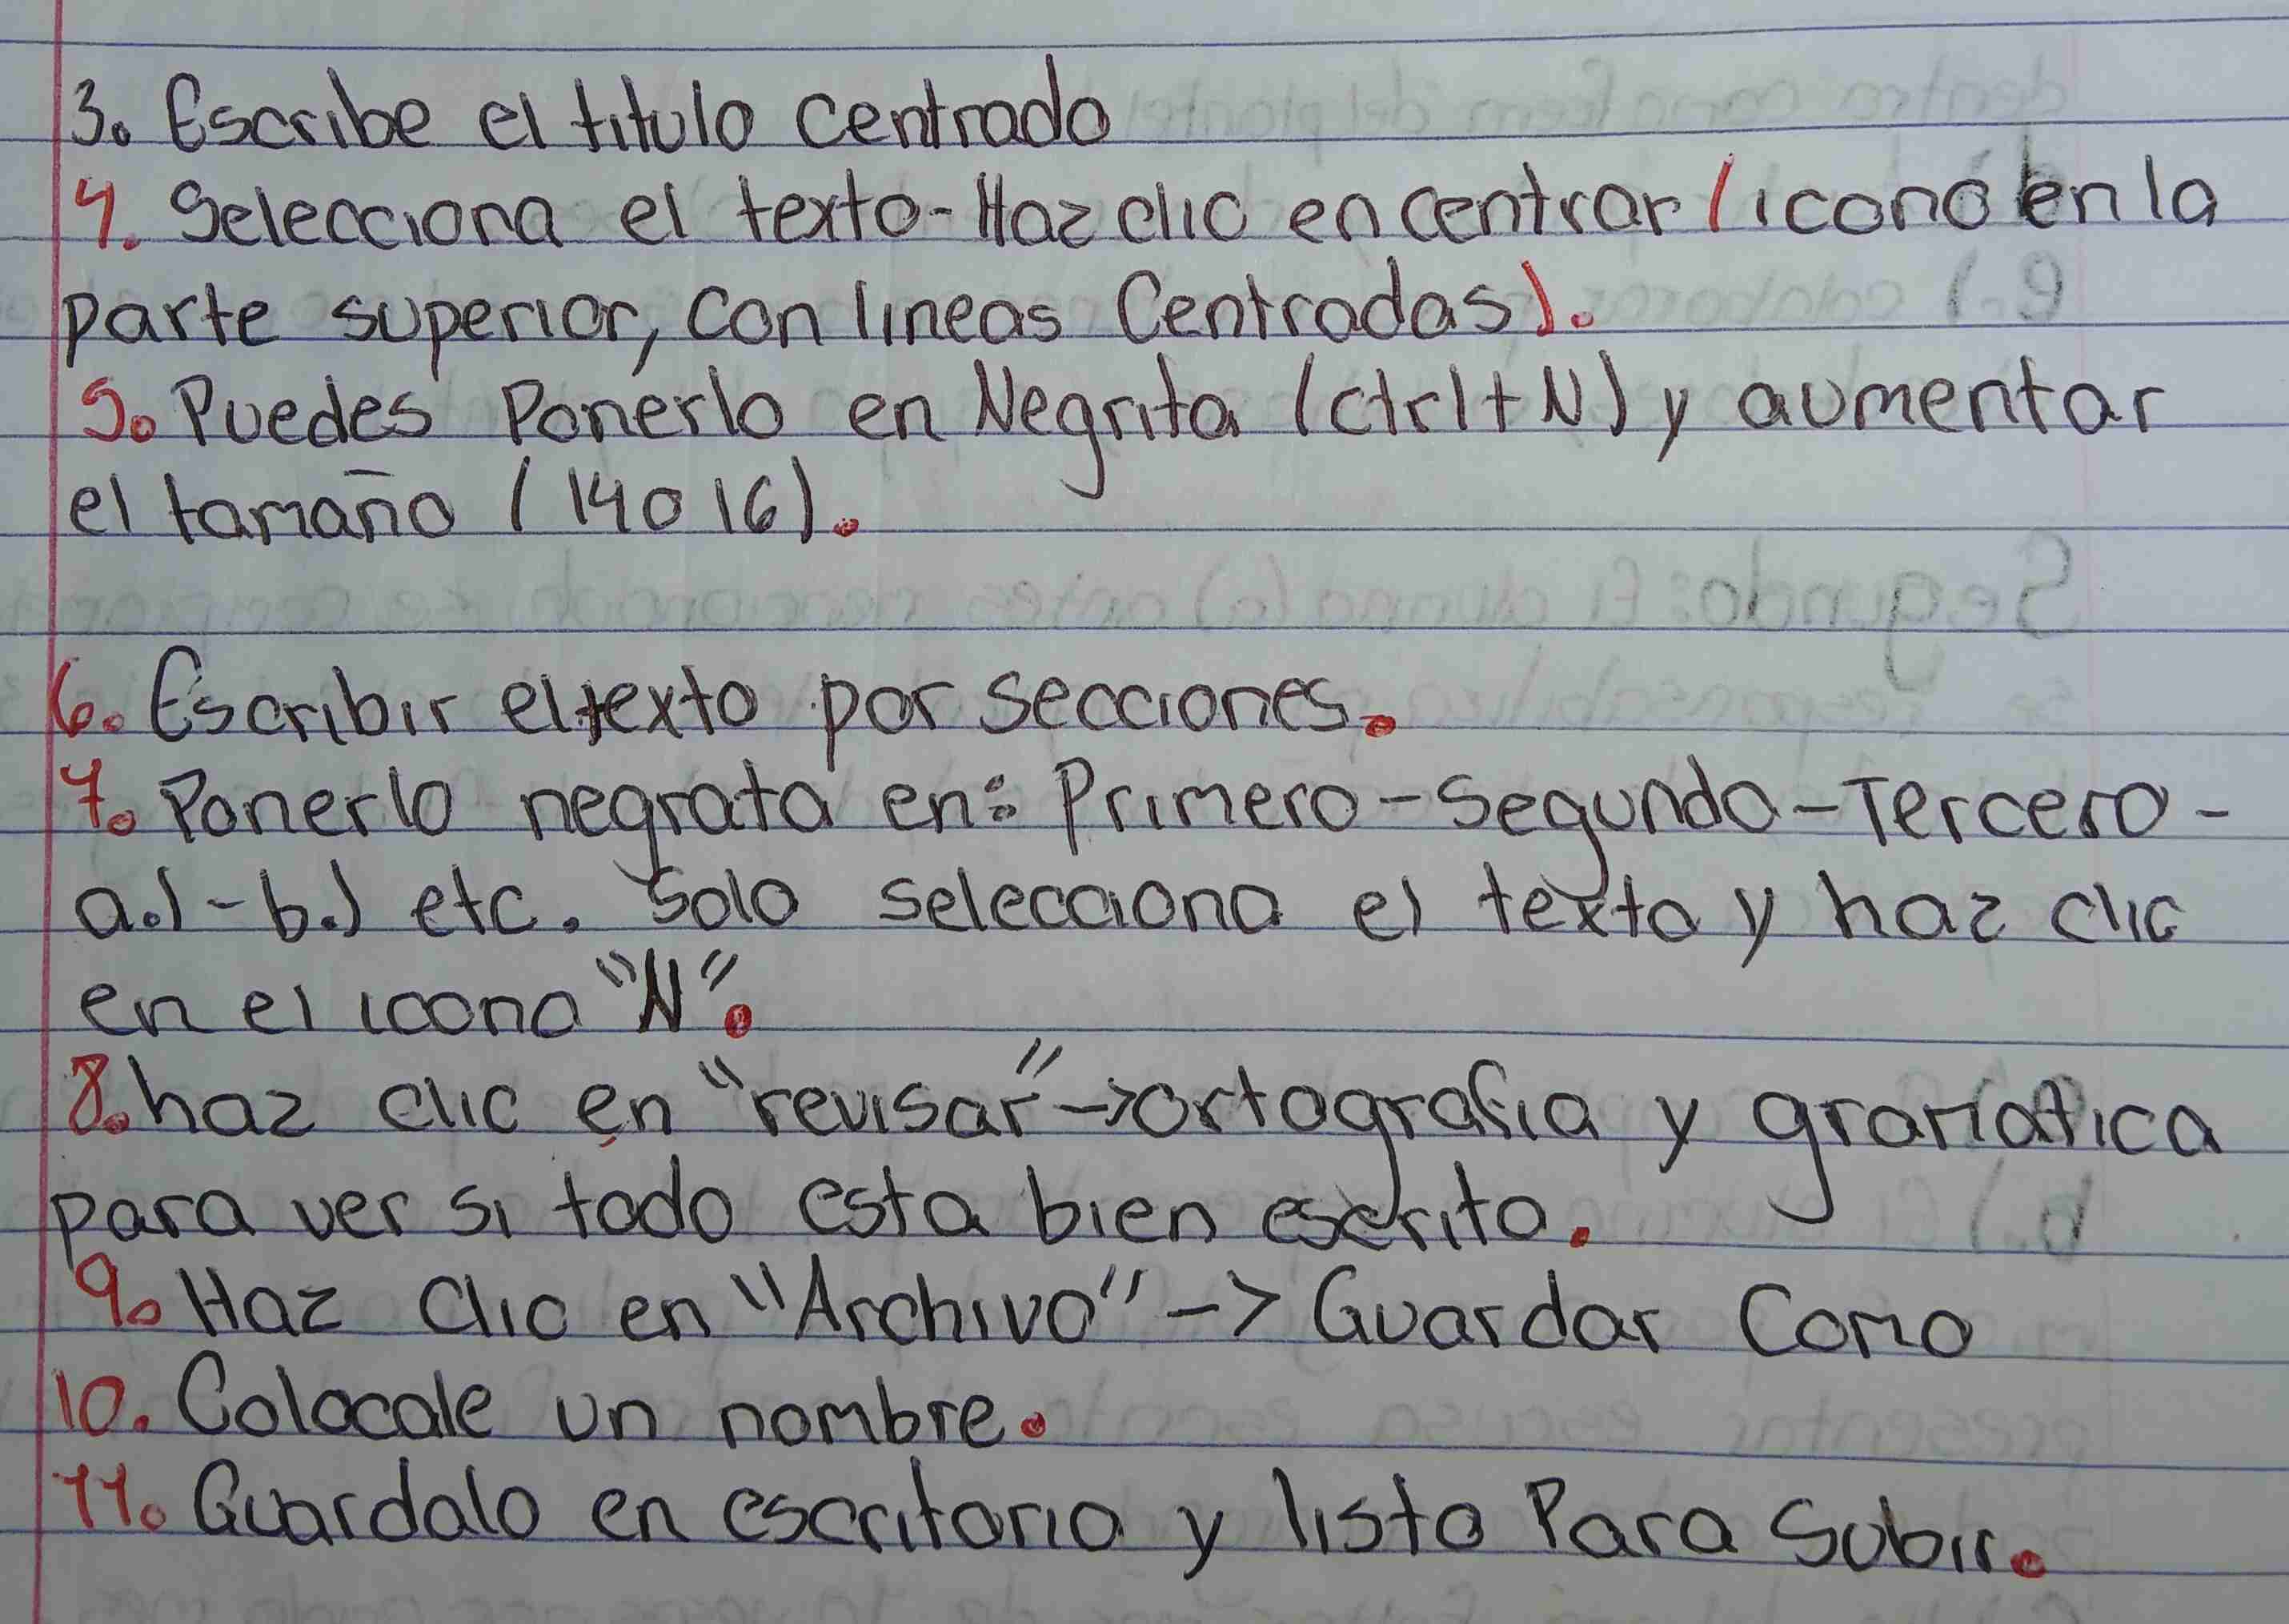 3. Escribe el titulo centrado
4. Selecciona el texto-Haz clic en centrar (icono en la
parte superior, con lineas Centradas).
5. Puedes Ponerlo en Negrita (ctrl+N) y aumentar
el tamaño (14 o 16).
6. Escribir el texto por secciones.
7. Ponerlo negrata en: Primero-Segundo-Tercero-
a.)-b.) etc. Solo selecciona el texto y haz clic
en el icono "N".
8. haz clic en "revisar"->ortografia y gramatica
para ver si todo esta bien escrito.
9. Haz Clic en "Archivo"-> Guardar Como
10. Colocale un nombre.
11. Guardalo en escritorio y listo Para Subir.